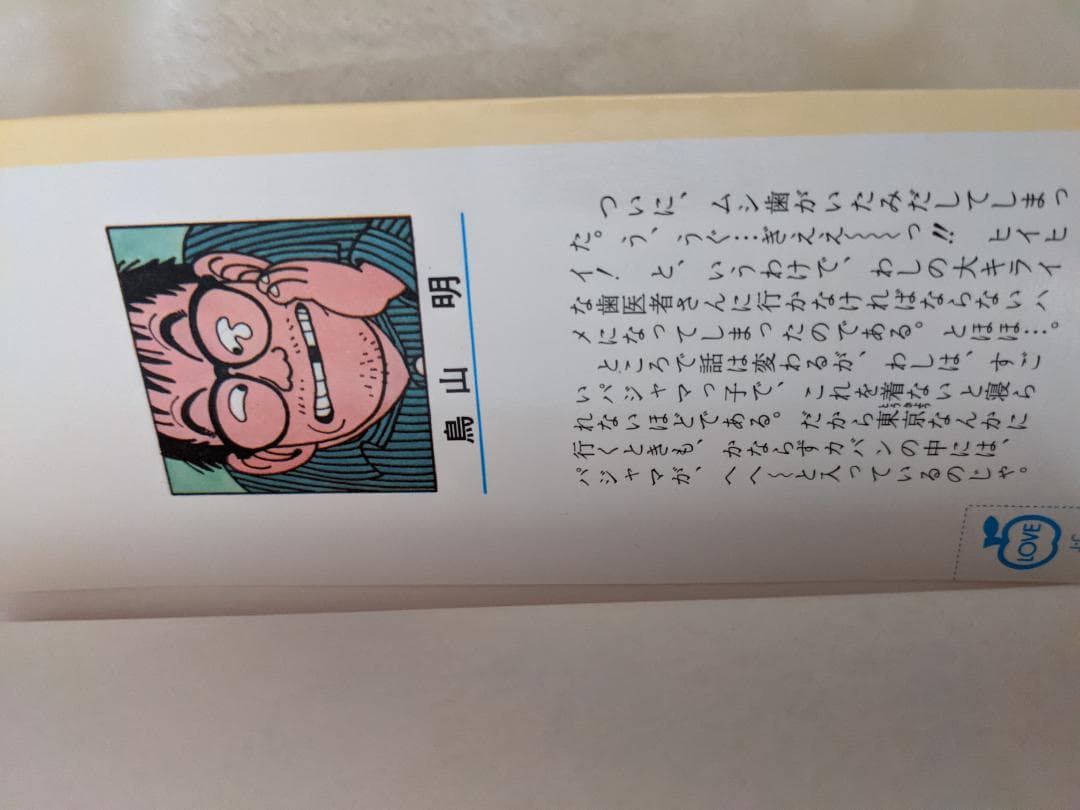 鳥山 明
ついに、ムシ歯がいたみだしてしまっ
た。う、うぐ…ぎええ〜〜〜っ!! ヒイヒ
イ! と、いうわけで、わしの大キライ
な歯医者さんに行かなければならないハ
メになってしまったのである。とほほ…。
ところで話は変わるが、わしは、すご
いパジャマっ子で、これを着ないと寝ら
れないほどである。だから東京なんかに
行くときも、かならずカバンの中には、
パジャマが、へへ〜と入っているのじゃ。
LOVE